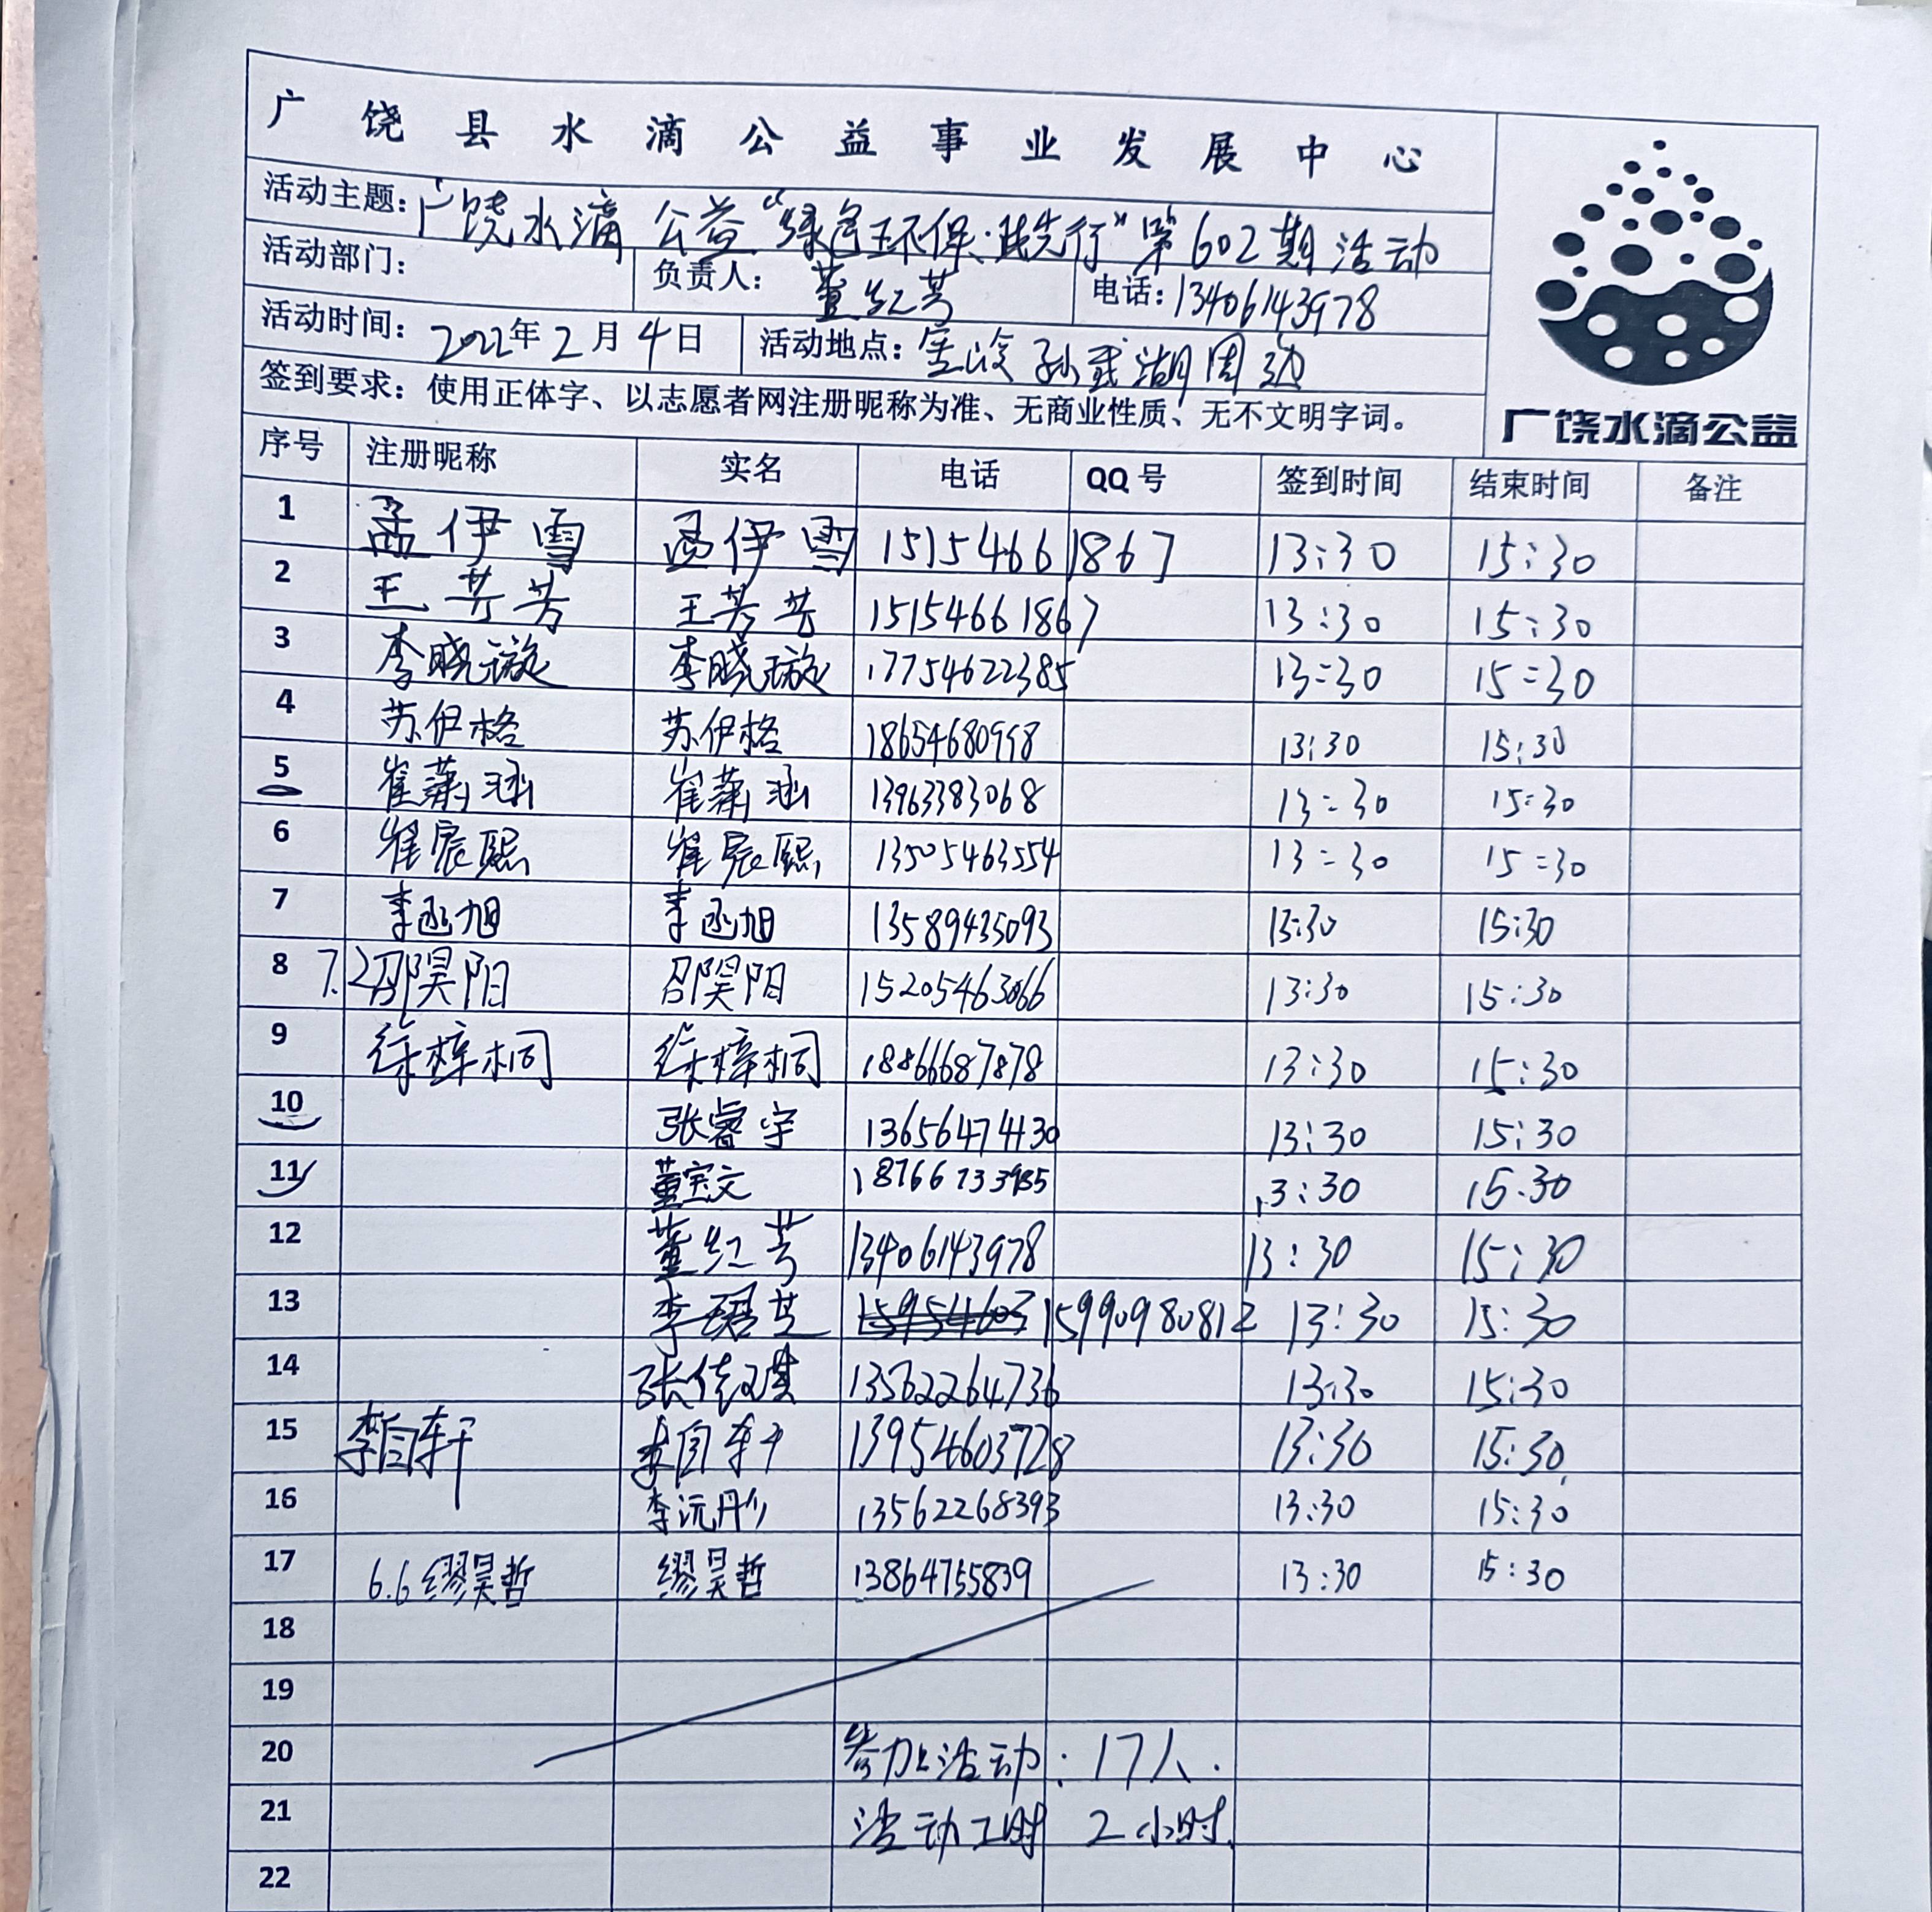 广饶县水滴公益事业发展中心
活动主题：广饶水滴公益“绿色环保·我先行”第602期活动
活动部门： 负责人：董红芳 电话：13406143978
活动时间：2022年2月4日 活动地点：孙武湖周边
签到要求：使用正体字、以志愿者网注册昵称为准、无商业性质、无不文明字词。
广饶水滴公益
序号 注册昵称 实名 电话 QQ号 签到时间 结束时间 备注
1 孟伊雪 孟伊雪 15154661867 13:30 15:30
2 王芳芳 王芳芳 15154661867 13:30 15:30
3 李晓璇 李晓璇 17754622385 13:30 15:30
4 苏伊格 苏伊格 18654680998 13:30 15:30
5 崔萧涵 崔萧涵 13963383068 13:30 15:30
6 崔宸熙 崔宸熙 13505463554 13:30 15:30
7 李函旭 李函旭 13589435093 13:30 15:30
8 7.2邵昊阳 邵昊阳 15205463066 13:30 15:30
9 徐梓桐 徐梓桐 18866687878 13:30 15:30
10 张睿宇 13656474130 13:30 15:30
11 董宝文 18766733985 13:30 15:30
12 董红芳 13406143978 13:30 15:30
13 李珺芝 15990980812 13:30 15:30
14 张倩琪 13562264736 13:30 15:30
15 李自轩 李自轩 13954603728 13:30 15:30
16 李沅彤 13562268393 13:30 15:30
17 6.6缪昊哲 缪昊哲 13864755839 13:30 15:30
18
19
20 参加活动：17人.
21 活动工时 2小时.
22